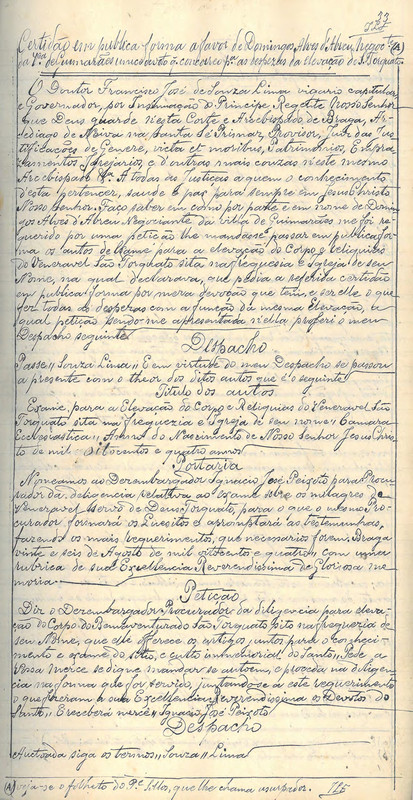 33
Certidão em publica forma a favor de Domingos Alves d'Abreu, Negociante (A)
da Vª de Guimarães unico devoto q̃ concorreo pª as despezas da elevação de S. Torquato
O Doutor Francisco José de Souza Lima vigario capitular
e Governador, por Insinuação do Principe Regente Nosso Senhor
que Deus guarde n'esta Corte e Arcebispado de Braga, Ar-
cediago de Neiva na Santa Sé Primaz, Provisor, Juiz das Jus-
tificações de Genere, vita et moribus, Patrimonios,
e d'outras mais couzas n'este mesmo
Arcebispado &ª A todas as Justiças a quem o conhecimento
d'esta pertencer, saude e paz para sempre em Jesus Christo
Nosso Senhor. Faço saber em como por parte e em nome de Domin-
gos Alves d'Abreu Negociante da Villa de Guimarães me foi re-
querido por uma petição lhe mandasse passar em publica for-
ma os autos de exame para a elevação do Corpo e Reliquias
do Veneravel São Torquato sita na freguesia e Igreja de seu
Nome, na qual declarava, que pedia a referida certidão
em publica forma por mera devoção que tem, e ser elle o que
fez todas as despezas com a função da mesma Elevação, a
qual petição sendo-me apresentada n'ella proferi o meu
Despacho seguinte
Despacho
Passe,, Souza Lima,, E em virtude do meu Despacho se passou
a presente com o theor dos ditos autos que é o seguinte
Titulo dos autos
Exame para a Elevação do Corpo e Reliquias do Veneravel São
Torquato sita na freguezia e Igreja de seu nome,, Camara
Ecclesiastica,, Anno do Nascimento de Nosso Senhor Jesus Chris-
to de mil oitocentos e quatro annos
Portaria
Nomeamos ao Dezembargador Ignacio José Peixoto para Procu-
rador da diligencia relativa ao exame sobre os milagres do
Veneravel Servo de Deus Torquato, para o que o mesmo Pro-
curador formará os Quesitos e apromptará as testemunhas,
fazendo os mais requerimentos, que necessarios forem. Braga
vinte e seis de Agosto de mil oitocentos e quatro,, com uma
rubrica de sua Excellencia Reverendissima de Gloriosa me-
moria
Petição
Diz o Dezembargador Procurador da diligencia para eleva-
ção do Corpo do Bemaventurado São Torquato sito na freguezia de
seu Nome, que elle offerece os artigos juntos para o conheci-
mento e exame do sitio, e culto immemorial do Santo,, Pede a
Vossa Mercê se digne mandar se autoem, e proceda na diligen-
cia na forma que for servido, juntando-se a este requerimento
o que fizeram a sua Excellencia Reverendissima os Devotos do
Santo,, E receberá mercê,, Ignacio José Peixoto
Despacho
Autoada siga os termos,, Souza,, Lima
(A) Veja-se o folheto do Pe que lhe chama usurpador.